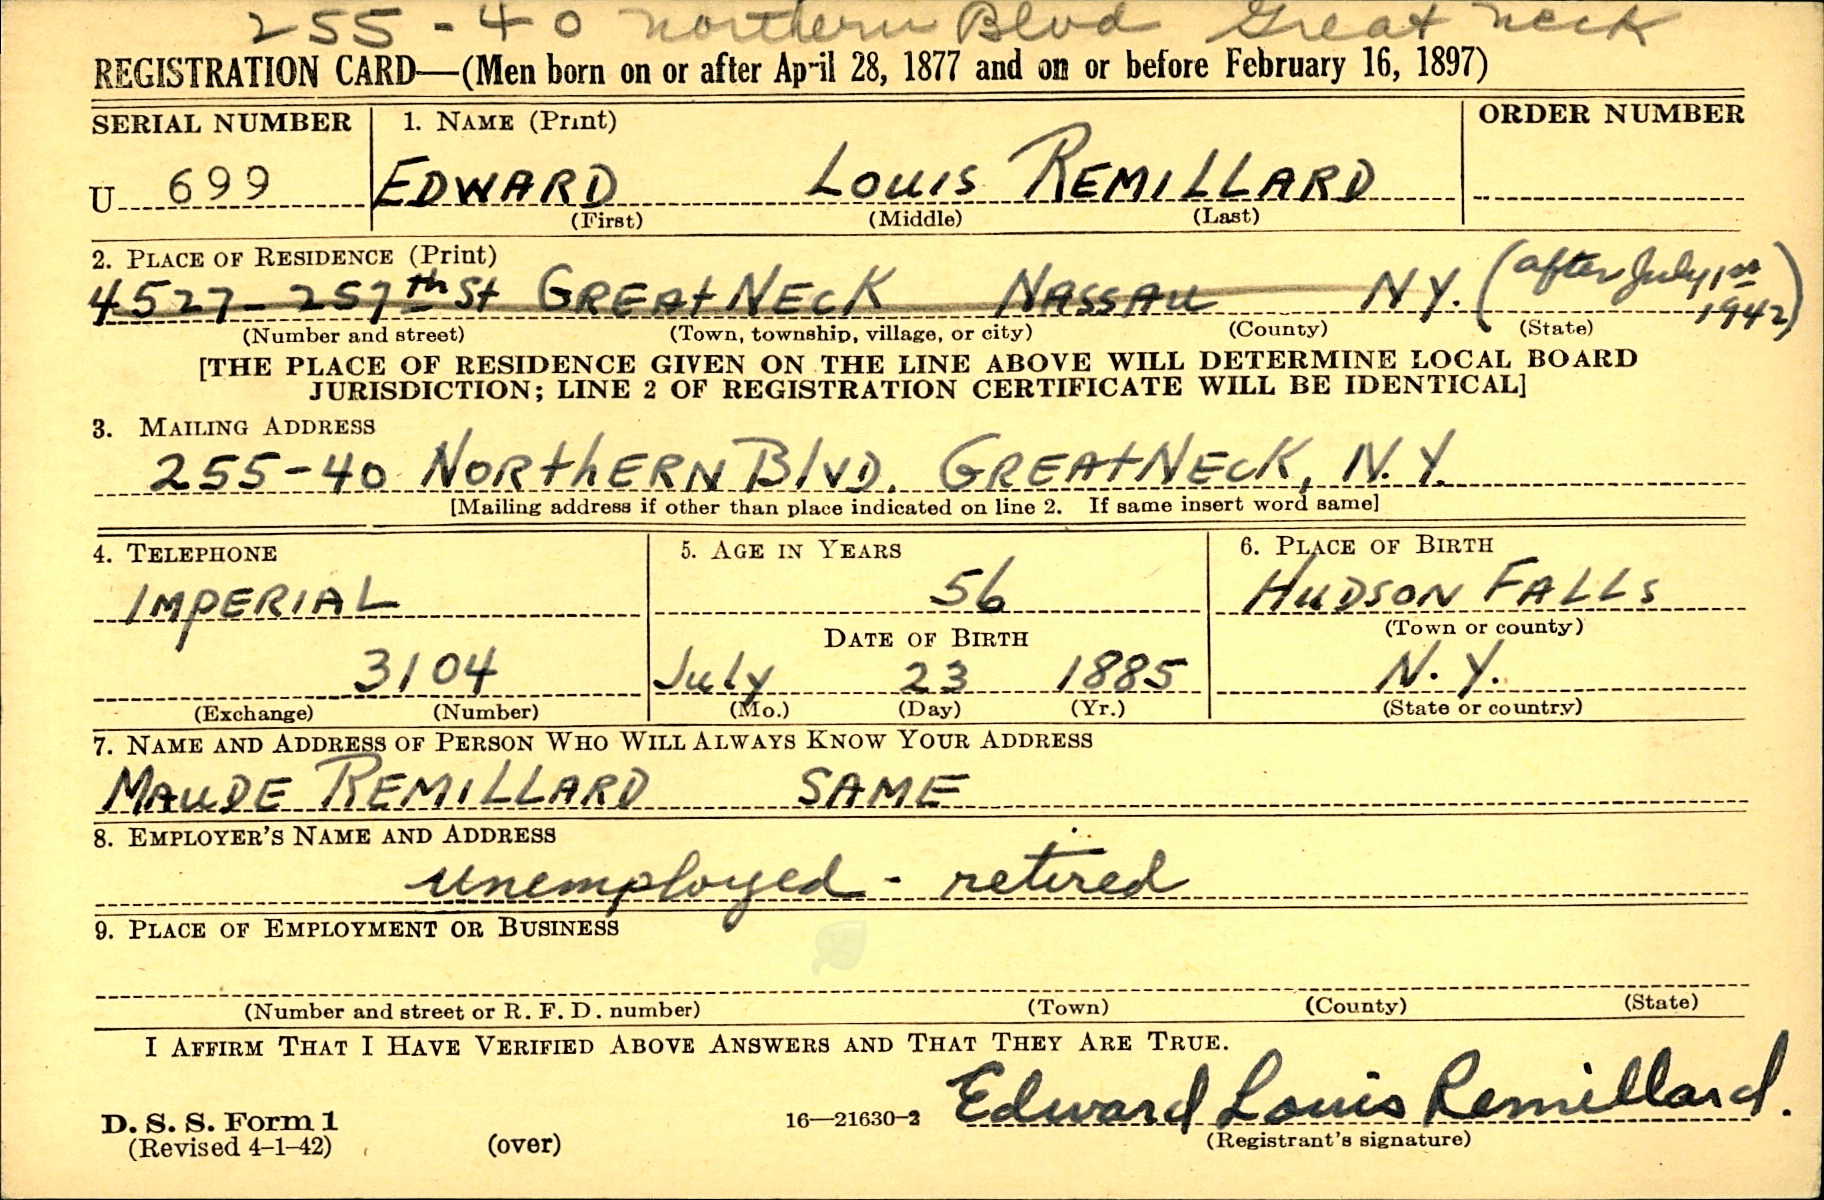 255-40 Northern Blvd Great Neck
REGISTRATION CARD—(Men born on or after April 28, 1877 and on or before February 16, 1897)
SERIAL NUMBER 1. NAME (Print) ORDER NUMBER
U 699 EDWARD LOUIS REMILLARD
(First) (Middle) (Last)
2. PLACE OF RESIDENCE (Print)
4527-257th St GREAT NECK NASSAU NY. (after July 1st 1942)
(Number and street) (Town, township, village, or city) (County) (State)
[THE PLACE OF RESIDENCE GIVEN ON THE LINE ABOVE WILL DETERMINE LOCAL BOARD
JURISDICTION; LINE 2 OF REGISTRATION CERTIFICATE WILL BE IDENTICAL]
3. MAILING ADDRESS
255-40 NORTHERN BLVD. GREAT NECK, N.Y.
[Mailing address if other than place indicated on line 2. If same insert word same]
4. TELEPHONE 5. AGE IN YEARS 6. PLACE OF BIRTH
IMPERIAL 56 HUDSON FALLS
DATE OF BIRTH (Town or county)
3104 July 23 1885 N.Y.
(Exchange) (Number) (Mo.) (Day) (Yr.) (State or country)
7. NAME AND ADDRESS OF PERSON WHO WILL ALWAYS KNOW YOUR ADDRESS
MAUDE REMILLARD SAME
8. EMPLOYER'S NAME AND ADDRESS
unemployed - retired
9. PLACE OF EMPLOYMENT OR BUSINESS
(Number and street or R. F. D. number) (Town) (County) (State)
I AFFIRM THAT I HAVE VERIFIED ABOVE ANSWERS AND THAT THEY ARE TRUE.
D. S. S. Form 1 16—21630-2 Edward Louis Remillard.
(Revised 4-1-42) (over) (Registrant's signature)